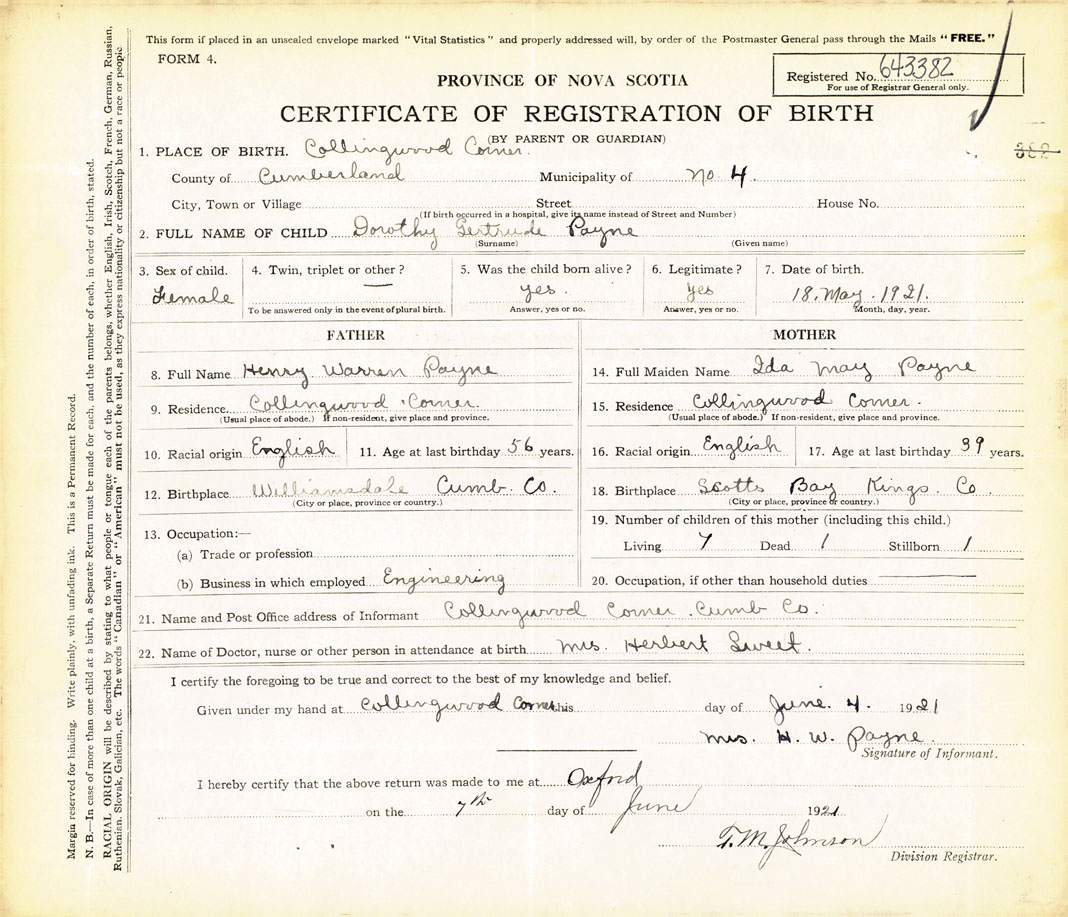 This form if placed in an unsealed envelope marked "Vital Statistics" and properly addressed will, by order of the Postmaster General pass through the Mails "FREE."
FORM 4.
Registered No. 643382
For use of Registrar General only.
PROVINCE OF NOVA SCOTIA
CERTIFICATE OF REGISTRATION OF BIRTH
(BY PARENT OR GUARDIAN)
382
1. PLACE OF BIRTH. Collingwood Corner.
County of Cumberland Municipality of No. 4.
City, Town or Village Street House No.
(If birth occurred in a hospital, give its name instead of Street and Number)
2. FULL NAME OF CHILD Dorothy Gertrude Payne
(Surname) (Given name)
3. Sex of child. 4. Twin, triplet or other? 5. Was the child born alive? 6. Legitimate? 7. Date of birth.
Female — yes. yes 18. May. 1921.
To be answered only in the event of plural birth. Answer, yes or no. Answer, yes or no. Month, day, year.
FATHER MOTHER
8. Full Name Henry Warren Payne
9. Residence Collingwood Corner.
(Usual place of abode.) If non-resident, give place and province.
10. Racial origin English 11. Age at last birthday 56 years.
12. Birthplace Williamsdale Cumb. Co.
(City or place, province or country.)
13. Occupation:—
(a) Trade or profession
(b) Business in which employed Engineering
14. Full Maiden Name Ida May Payne
15. Residence Collingwood Corner.
(Usual place of abode.) If non-resident, give place and province.
16. Racial origin English 17. Age at last birthday 39 years.
18. Birthplace Scotts Bay Kings. Co.
(City or place, province or country.)
19. Number of children of this mother (including this child.)
Living 7 Dead 1 Stillborn 1
20. Occupation, if other than household duties —
21. Name and Post Office address of Informant Collingwood Corner. Cumb Co.
22. Name of Doctor, nurse or other person in attendance at birth Mrs. Herbert Sweet.
I certify the foregoing to be true and correct to the best of my knowledge and belief.
Given under my hand at Collingwood Corner. this day of June. 4. 1921
Mrs. H. W. Payne.
Signature of Informant.
I hereby certify that the above return was made to me at Oxford
on the 7th day of June 1921
T. M. Johnson
Division Registrar.
Margin reserved for binding. Write plainly, with unfading ink. This is a Permanent Record.
N. B.—In case of more than one child at a birth, a Separate Return must be made for each, and the number of each, in order of birth, stated.
RACIAL ORIGIN will be described by stating to what people or tongue each of the parents belongs, whether English, Irish, Scotch, French, German, Russian,
Ruthenian, Slovak, Galician, etc. The words "Canadian" or "American" must not be used, as they express nationality or citizenship but not a race or people.